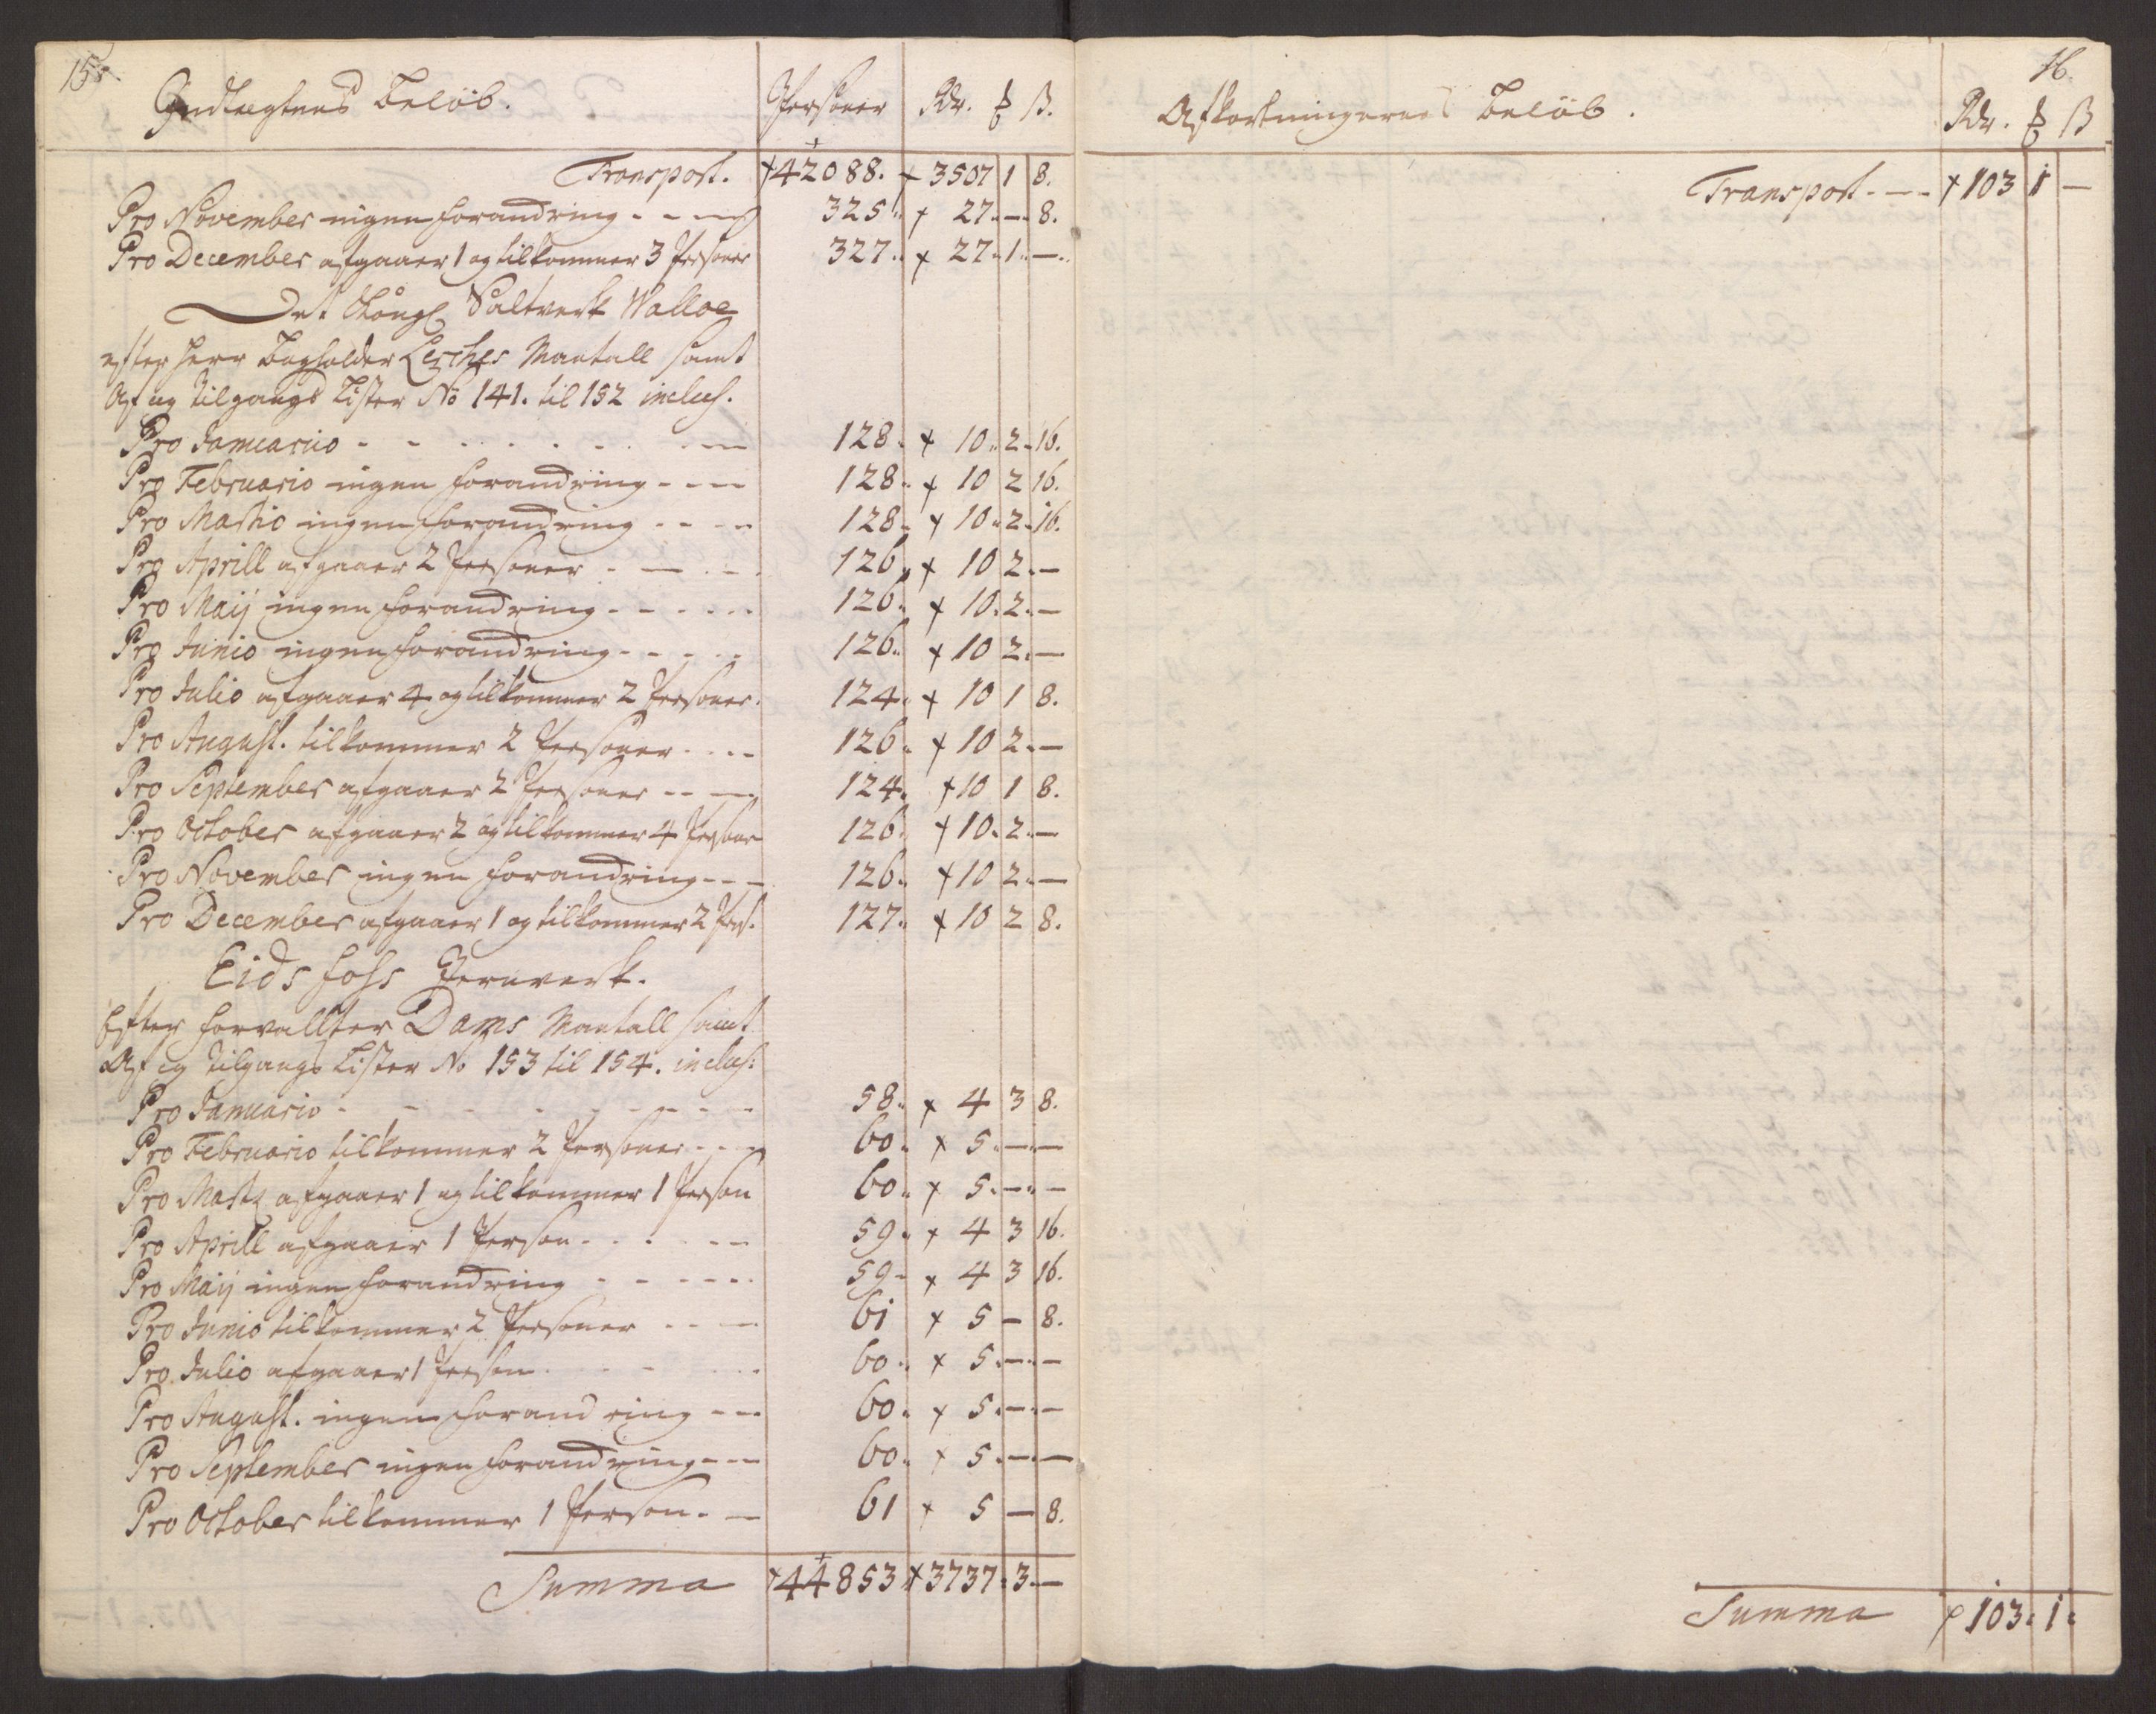 15.
Indtegtens Beløb. Persohner Rdr. ₰ ß.
Transport. 42088. 3507 1 8.
Pro November ingen forandring - - - 325 27 - 8.
Pro December afgaaer 1 og tilkommer 3 Persohner 327 27 1 -
Det Kongl. Saltverk Walloe
efter Herr Bogholder Lesches Mantall samt
Af og tilgangs Lister No 141. til 152 inclus.
Pro Januario - - - 128 10 2 16.
Pro Februario ingen forandring - - - 128 10 2 16.
Pro Martio ingen forandring - - - 128 10 2 16.
Pro Aprill afgaaer 2 Persohner - - - 126 10 2 -
Pro Maij ingen forandring - - - 126 10 2 -
Pro Junio ingen forandring - - - 126 10 2 -
Pro Julio afgaaer 4 og tilkommer 2 Persohner. 124 10 1 8.
Pro August. tilkommer 2 Persohner - - - 126 10 2 -
Pro September afgaaer 2 Persohner - - - 124 10 1 8.
Pro October afgaaer 2 og tilkommer 4 Persohner 126 10 2 -
Pro November ingen forandring - - - 126 10 2 -
Pro December afgaaer 1 og tilkommer 2 Pers. 127 10 2 8.
Eidsfoss Jernverk.
Efter Forvallter Dams Mantall samt
Af og tilgangs Lister No 153 til 154. inclus:
Pro Januario - - - 58 4 3 8.
Pro Februario tilkommer 2 Persohner - - - 60 5 - -
Pro Marti afgaaer 1 og tilkommer 1 Persohn 60 5 - -
Pro Aprill afgaaer 1 Persohn - - - 59 4 3 16.
Pro Maij ingen forandring - - - 59 4 3 16.
Pro Junio tilkommer 2 Persohner - - - 61 5 - 8.
Pro Julio afgaaer 1 Persohn - - - 60 5 - -
Pro August. ingen forandring - - - 60 5 - -
Pro September ingen forandring - - - 60 5 - -
Pro October tilkommer 1 Persohn - - 61 5 - 8.
Summa 44853 3737 3 -
16.
Afkortningernes Beløb. Rdr. ₰ ß
Transport - - - 103 1 -
Summa 103 1